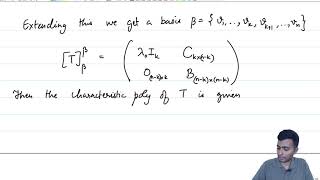 Extending this we get a basis β = { v₁, .., vₖ, vₖ₊₁, .., vₙ }
[T]ᵦᵝ = ( λ₀Iₖ C_{k×(n-k)}
O_{(n-k)×k} B_{(n-k)×(n-k)} )
Then the characteristic poly of T is given